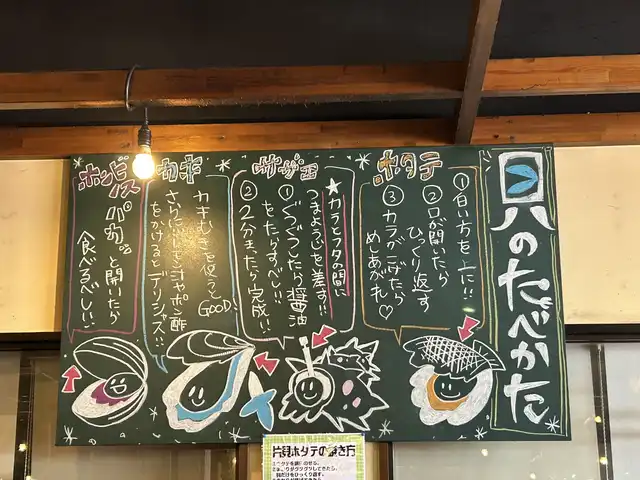 貝のたべかた
ホタテ
①白い方を上に!!
②口が開いたら
ひっくり返す
③カラがこげたら
めしあがれ♡
サザエ
★カラとフタの間に
つまようじを差す!!
①ぐつぐつしたら醤油
をたらすべし!!
②2分まったら完成!!
カキ
カキむきを使って
GOOD!
さらにレモン汁やポン酢
をかけるとデリシャス!!
ホンビノス
パカッと開いたら
食べるべしい!
片貝ホタテの焼き方